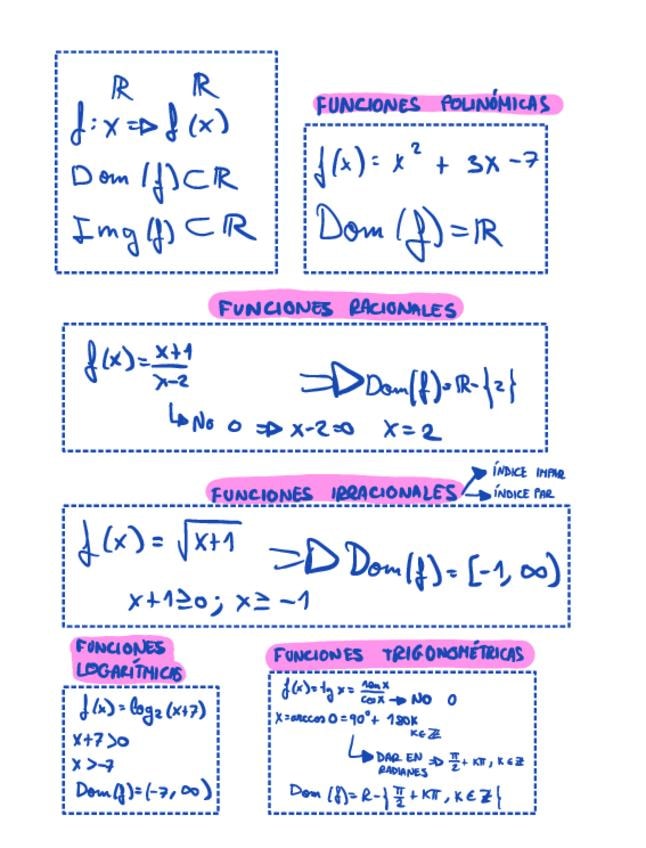 ℝ ℝ
f: x ⇒ f(x)
Dom (f) ⊂ ℝ
Img (f) ⊂ ℝ
FUNCIONES POLINÓMICAS
f(x) = x² + 3x - 7
Dom (f) = ℝ
FUNCIONES RACIONALES
f(x) = (x+1)/(x-2)
⇒ Dom(f) = ℝ - {2}
↳ No 0 ⇒ x-2=0 x=2
FUNCIONES IRRACIONALES
→ ÍNDICE IMPAR
→ ÍNDICE PAR
f(x) = √(x+1) ⇒ Dom(f) = [-1, ∞)
x+1≥0; x ≥ -1
FUNCIONES
LOGARÍTMICAS
f(x) = log₂(x+7)
x+7>0
x>-7
Dom(f) = (-7, ∞)
FUNCIONES TRIGONOMÉTRICAS
f(x) = tg x = sen x / cos x → NO 0
x = arccos 0 = 90° + 180K
K∈ℤ
↳ DAR EN RADIANES ⇒ π/2 + Kπ, K∈ℤ
Dom (f) = R - {π/2 + Kπ, K∈ℤ}